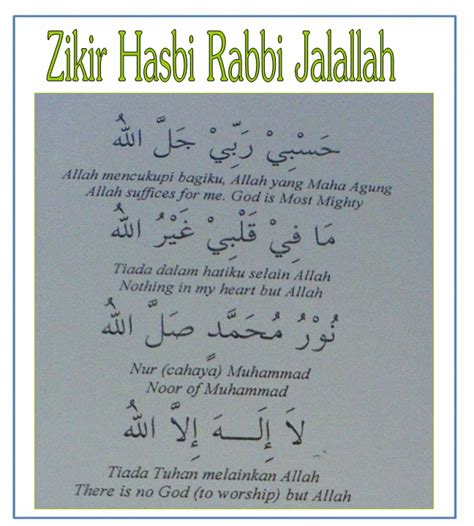 Zikir Hasbi Rabbi Jalallah
حَسْبِيْ رَبِّيْ جَلَّ اللهُ
Allah mencukupi bagiku, Allah yang Maha Agung
Allah suffices for me. God is Most Mighty
مَا فِيْ قَلْبِيْ غَيْرُ اللهُ
Tiada dalam hatiku selain Allah
Nothing in my heart but Allah
نُوْرُ مُحَمَّدٍ صَلَّ اللهُ
Nur (cahaya) Muhammad
Noor of Muhammad
لاَ إِلَـــهَ إِلاَّ اللهُ
Tiada Tuhan melainkan Allah
There is no God (to worship) but Allah